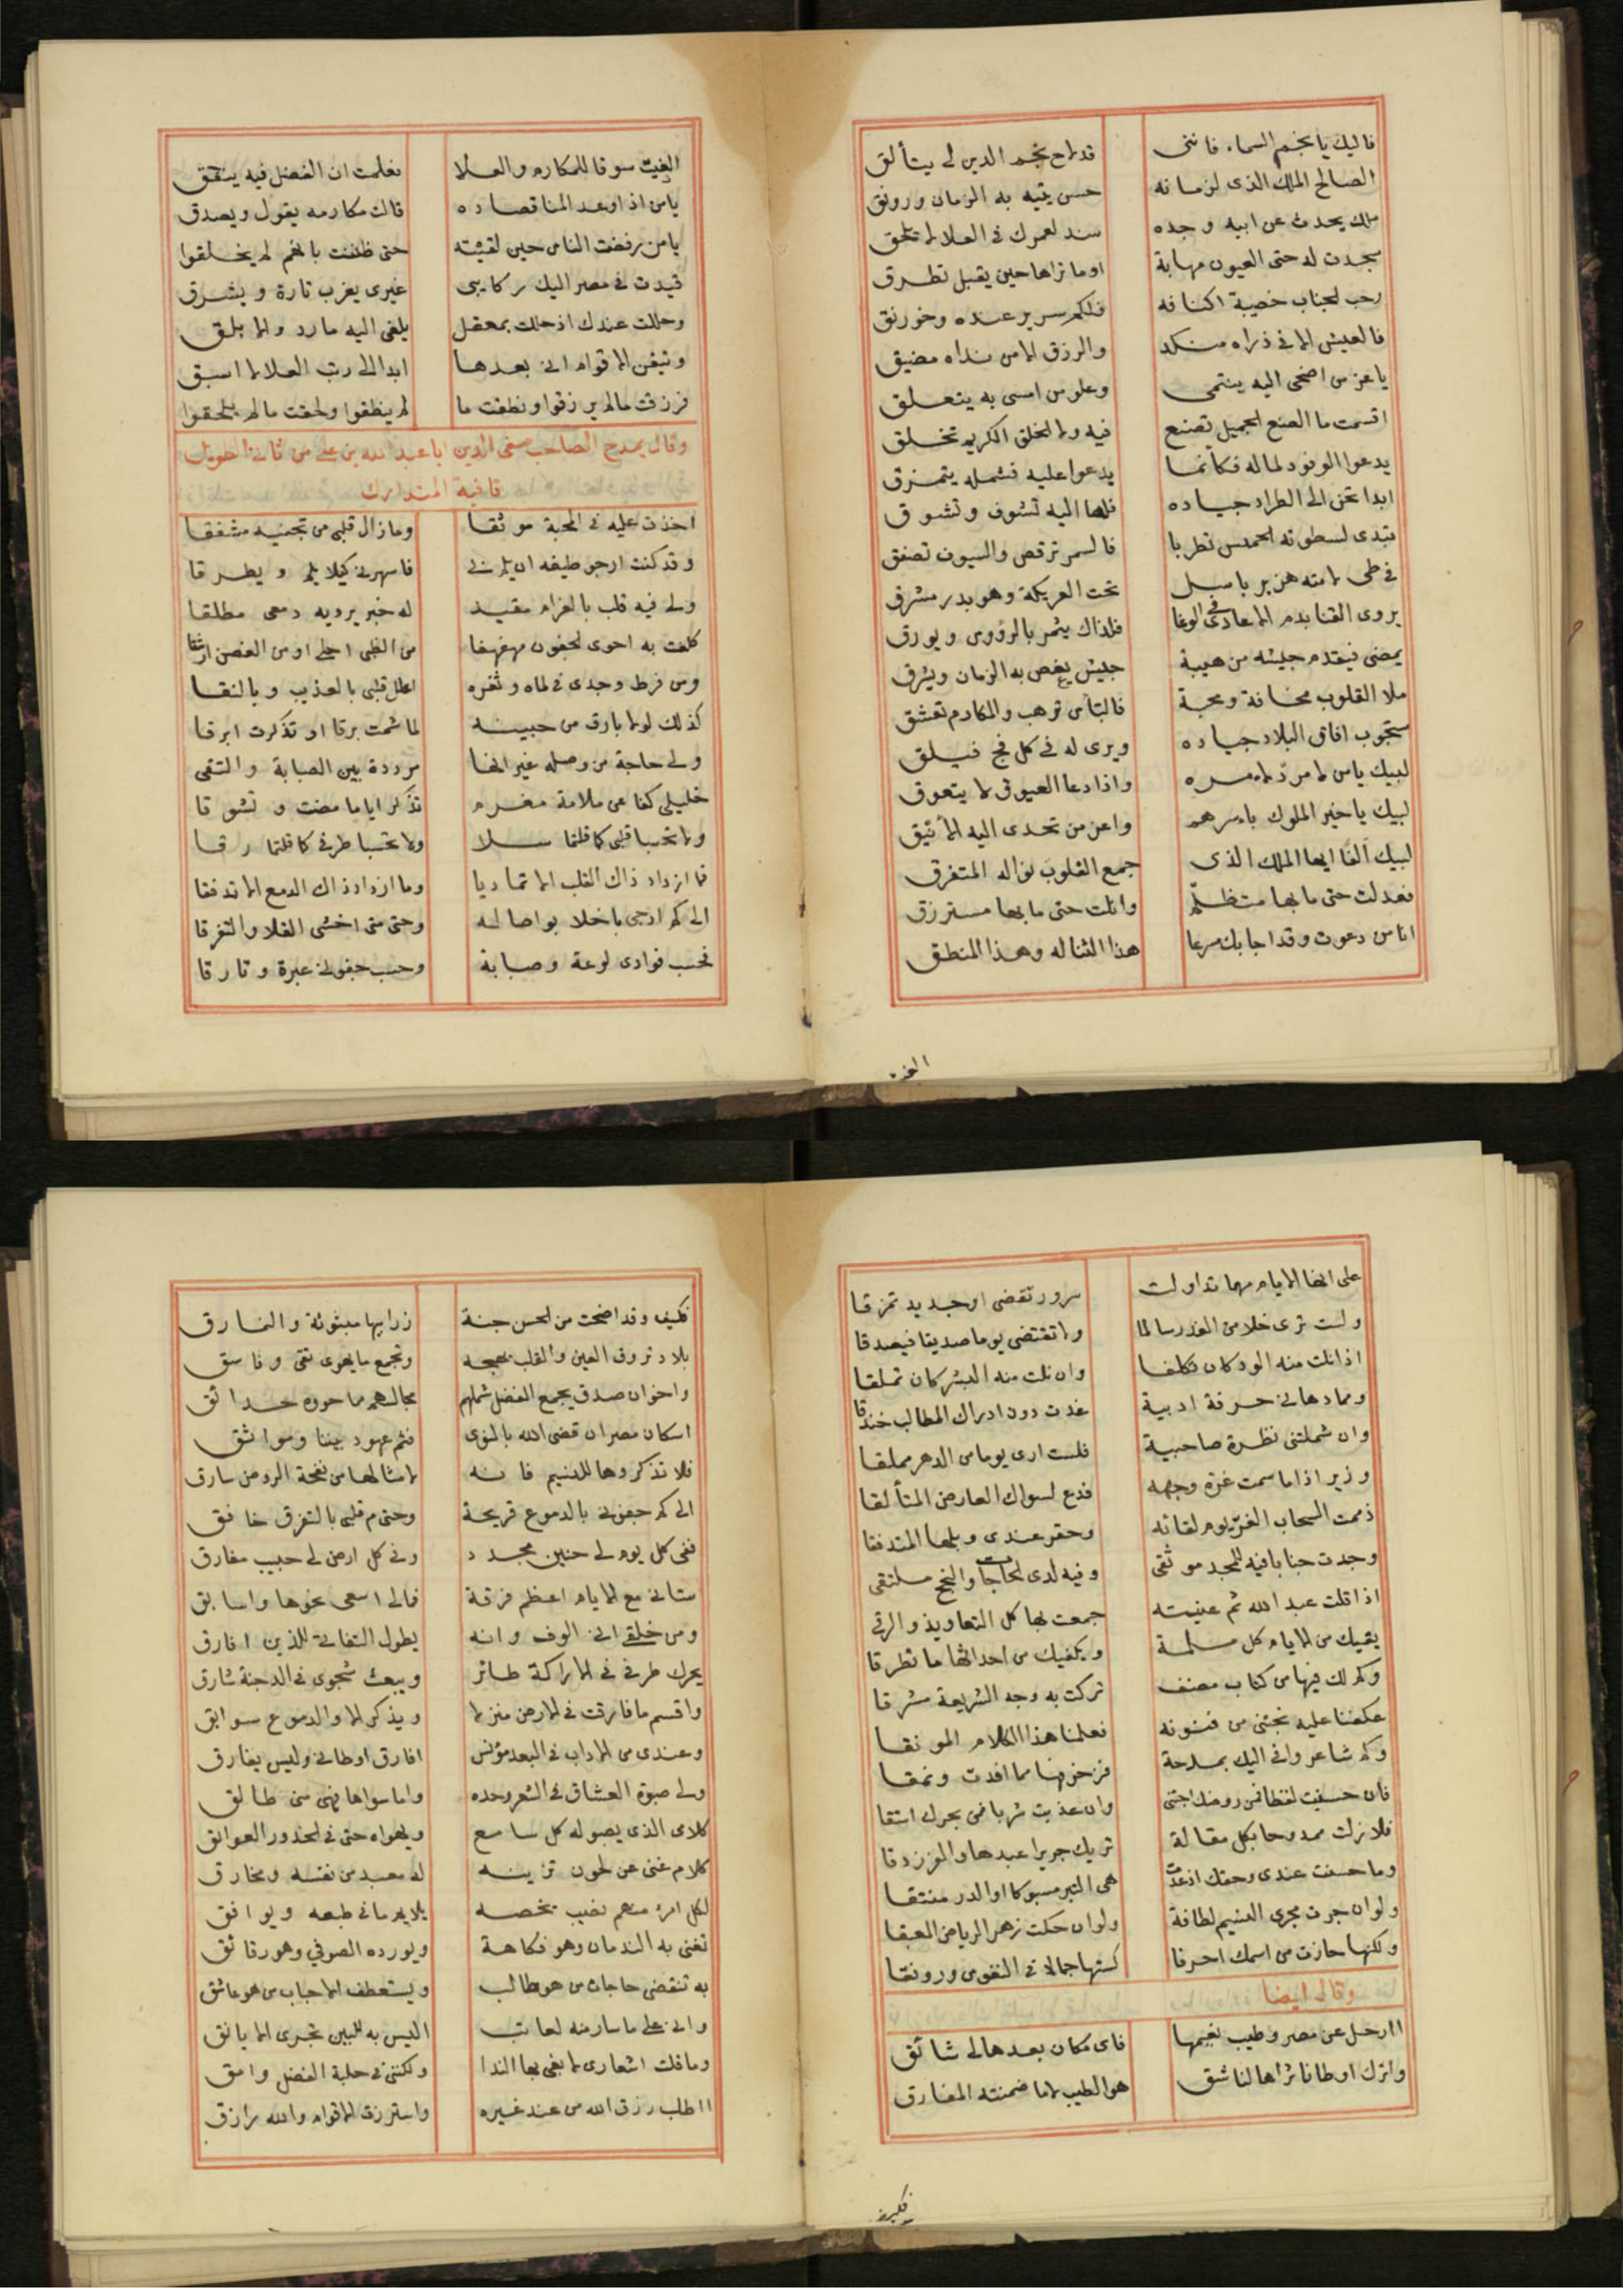 فاليك يا نجم السماء فانني قد لاح نجم الدين لى يتألق
الصالح الملك الذى لزمانه حسن يتيه به الزمان ورونق
ملك يحدث عن ابيه وجده سند لعمرك فى العلا لا تلحق
سجدت له حتى العيون مهابة اوما تراها حين يقبل تطرق
رحب الجناب خصيبة اكنافه فلكم سرير عنده وخورنق
فالعيش الا فى ذراه منكد والرزق الا من نداه مضيق
يا عز من اضحى اليه ينتمى وعلو من امسى به يتعلق
اقسمت ما الصنع الجميل تصنع فيه ولا الخلق الكريم تخلق
يدعوا الوفود لماله فكأنما يدعوا عليه فشمله يتمزق
ابدا تحن الى الطراد جياده فلها اليه تشوف وتشوق
تبدى لسطوته الخميس تطربا فالسمر ترقص والسيوف تصفق
فى طى لامته هزبر باسل تحت العريكة وهو بدر مشرق
يروى القنا بدم الاعادى فى الوغا فلذاك يثمر بالرؤوس ويورق
يمضى فيقدم جيشه من هيبة جيش يغص به الزمان ويشرق
ملا القلوب مخافة ومحبة فالبأس ترهب والمكارم تعشق
ستجوب افاق البلاد جياده ويرى له فى كل فج فيلق
لبيك يا من لا مردّ لامره واذا دعا العيوق لا يتعوق
لبيك يا خير الملوك باسرهم واعز من تحدى اليه الأنيق
لبيك الفًا ايها الملك الذى جمع القلوبَ نواله المتفرق
فعدلت حتى ما بها متظلّم وانلت حتى ما بها مسترزق
انا من دعوت وقد اجابك مسرعا هذا الثنا له وهذا المنطق
الفيت
الفيت سوقا للمكارم والعلا فعلمت ان الفضل فيه ينفق
يا من اذا وعد المنا قصاده قالت مكارمه يقول ويصدق
يا من رفضت الناس حين لقيته حتى ظننت بانهم لم يخلقوا
قيدت فى مصر اليك ركايبى غيرى يغرب تارة ويشرق
وحللت عندك اذ حللت بمعقل يلغى اليه مارد والابلق
وتيقن الاقوام انى بعدها ابدا الى رتب العلا لا اسبق
فرزقت مالم يرزقوا ونطقت ما لم ينطقوا ولحقت مالم يلحقوا
وقال يمدح الصاحب صفى الدين ابا عبد الله بن على من ثانى الطويل
قافية المتدارك
اخذت عليه فى المحبة موثقا وما زال قلبى من تجنيه مشفقا
وقد كنت ارجو طيفه ان يلم نى فاسهرنى كيلا يلم ويطرقا
ولى فيه قلب بالغرام مقيد له خبر يرويه دمعى مطلقا
كلفت به احوى الجفون مهفهفا من الظبى احلى او من الغصن ارشقا
ومن فرط وجدى فى لماه وثغره اعلل قلبى بالعذيب وبالنقا
كذلك لولا بارق من جبينه لما شمت برقا او تذكرت ابرقا
ولى حاجة من وصله غير انها مرددة بين الصبابة والتقى
خليلى كفا عن ملامة مغرم تذكر اياما مضت وتشوقا
ولا تحسبا قلبى كما قلتما سلا ولا تحسبا طرفى كما قلتما رقا
فما ازداد ذاك القلب الا تماديا وما ازداد ذاك الدمع الا تدفقا
الى كم ارجى باخلا بوصاله وحتى متى اخشى القلا والتفرقا
فحسب فوادى لوعة وصبابة وحسب جفونى عبرة وتارقا
على انها الايام مهما تداولت سرور تقضى او جديد تمزقا
ولست ترى خلا من الغدر سالما ولا تقتضى يوما صديقا فيصدقا
اذا نلت منه الود كان تكلفا وان نلت منه البشر كان تملقا
ومما دهانى حرفة ادبية غدت دون ادراك المطالب خندقا
وان شملتنى نظرة صاحبية فلست ارى يوما من الدهر مملقا
وزير اذا ما سمت غرة وجهه فدع لسواك العارض المتألقا
ذممت السحاب الغرّ يوم لقائه وحقر عندى وبلها المتدفقا
وجدت جنابا فيه للمجد موثقى وفيه لدى الحاجات والنجح ملتقى
اذا قلت عبد الله ثم عنيته جمعت بها كل التعاويذ والرقى
يقيك من الايام كل ملمة ويكفيك من احداثها ما تطرقا
وكم لك فينا من كتاب مصنف تركت به وجه الشريعة مشرقا
عكفنا عليه نجتنى من فنونه فعلمنا هذا الكلام المونقا
وكم شاعر وافى اليك بمدحة فزخرفها مما افدت ونمقا
فان حسنت لفظا فمن روضك اجتنى وان عذبت شربا فمن بحرك استقا
فلا زلت ممدوحا بكل مقالة تريك جريرا عبدها والفرزدقا
وما حسنت عندى وحقك اذ غدت هى التبر مسبوكا او الدر منتقا
ولو ان جرت مجرى النسيم لطافة ولو ان حكت زهر الرياض المعبقا
ولكنها حازت من اسمك احرفا كستها جمالا فى النفوس ورونقا
وقال ايضا
اارحل عن مصر وطيب نعيمها فاى مكان بعدها لى شائق
واترك اوطانا ثراها لناشق هو الطيب لا ما ضمنته المفارق
فكيف
فكيف وقد اضحت من الحسن جنة زرابيها مبثوثة والنمارق
بلاد تروق العين والقلب بهجة وتجمع ما يهوى تقى وفاسق
واخوان صدق يجمع الفضل شملهم مجالسهم مما حووه حدائق
اسكان مصر ان قضى الله بالنوى فثم عهود بيننا ومواثق
فلا تذكروها للنسيم فانه لامثالها من نفحة الروض سارق
الى كم جفونى بالدموع قريحة وحتى م قلبى بالتفرق خافق
ففى كل يوم لى حنين مجدد وفى كل ارض لى حبيب مفارق
ستانى مع الايام اعظم فرقة فمالى اسعى نحوها واسابق
ومن خلقى انى الوف وانه يطول التفاتى للذين افارق
يحرك طرفى فى الاراكة طائر ويبعث شجوى فى الدجنة شارق
واقسم ما فارقت فى الارض منزلا ويذكر الا والدموع سوابق
وعندى من الاداب فى البعد مؤنس افارق اوطانى وليس يفارق
ولى صبوة العشاق فى الشعر وحده واما سواها فهى منى طالق
كلامى الذى يصبو له كل سامع ويهواه حتى فى الخدور العواتق
كلام غنى عن لحون تزينه له معبد من نفسه ومخارق
لكل امرء منهم نصيب يخصه يلايم ما فى طبعه ويوافق
تغنى به الندمان وهو فكاهة ويورده الصوفى وهو رقائق
به تنقضى حاجات من هو طالب ويستعطف الاحباب من هو عاشق
وانى على ما سار منه لعاتب اليس به للبين تجرى الايانق
وما قلت اشعارى لا بغى بها الندا ولكننى فى حلبة الفضل وامق
ااطلب رزق الله من عند غيره واسترزق الاقوام والله رازق